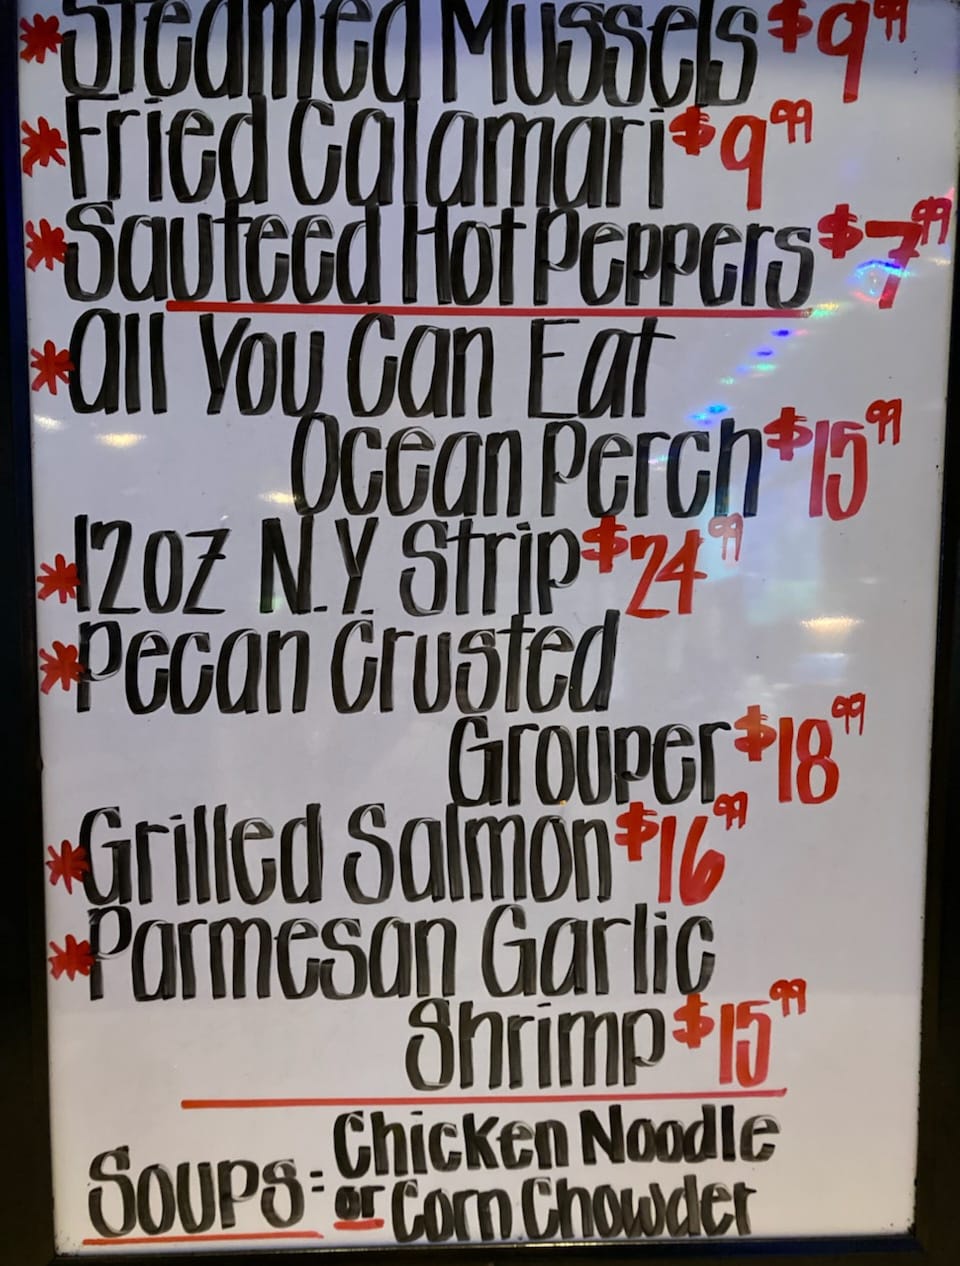 * Steamed Mussels $9.99
* Fried Calamari $9.99
* Sauteed Hot Peppers $7.99
* All You Can Eat
Ocean Perch $15.99
* 12oz N.Y. Strip $24.99
* Pecan Crusted
Grouper $18.99
* Grilled Salmon $16.99
* Parmesan Garlic
Shrimp $15.99
Soups: Chicken Noodle
or Corn Chowder